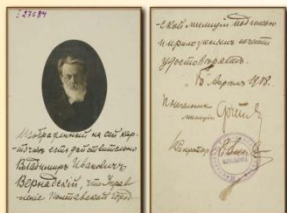 27084
Изображенный на сей кар-
точке есть действительно
Владимир Иванович
Вернадский, что Управ-
ление Полтавской город-
-ской милиции подписью
и приложением печати
удостоверяет.
15 Апреля 1918.
Начальник
милиции
Секретарь